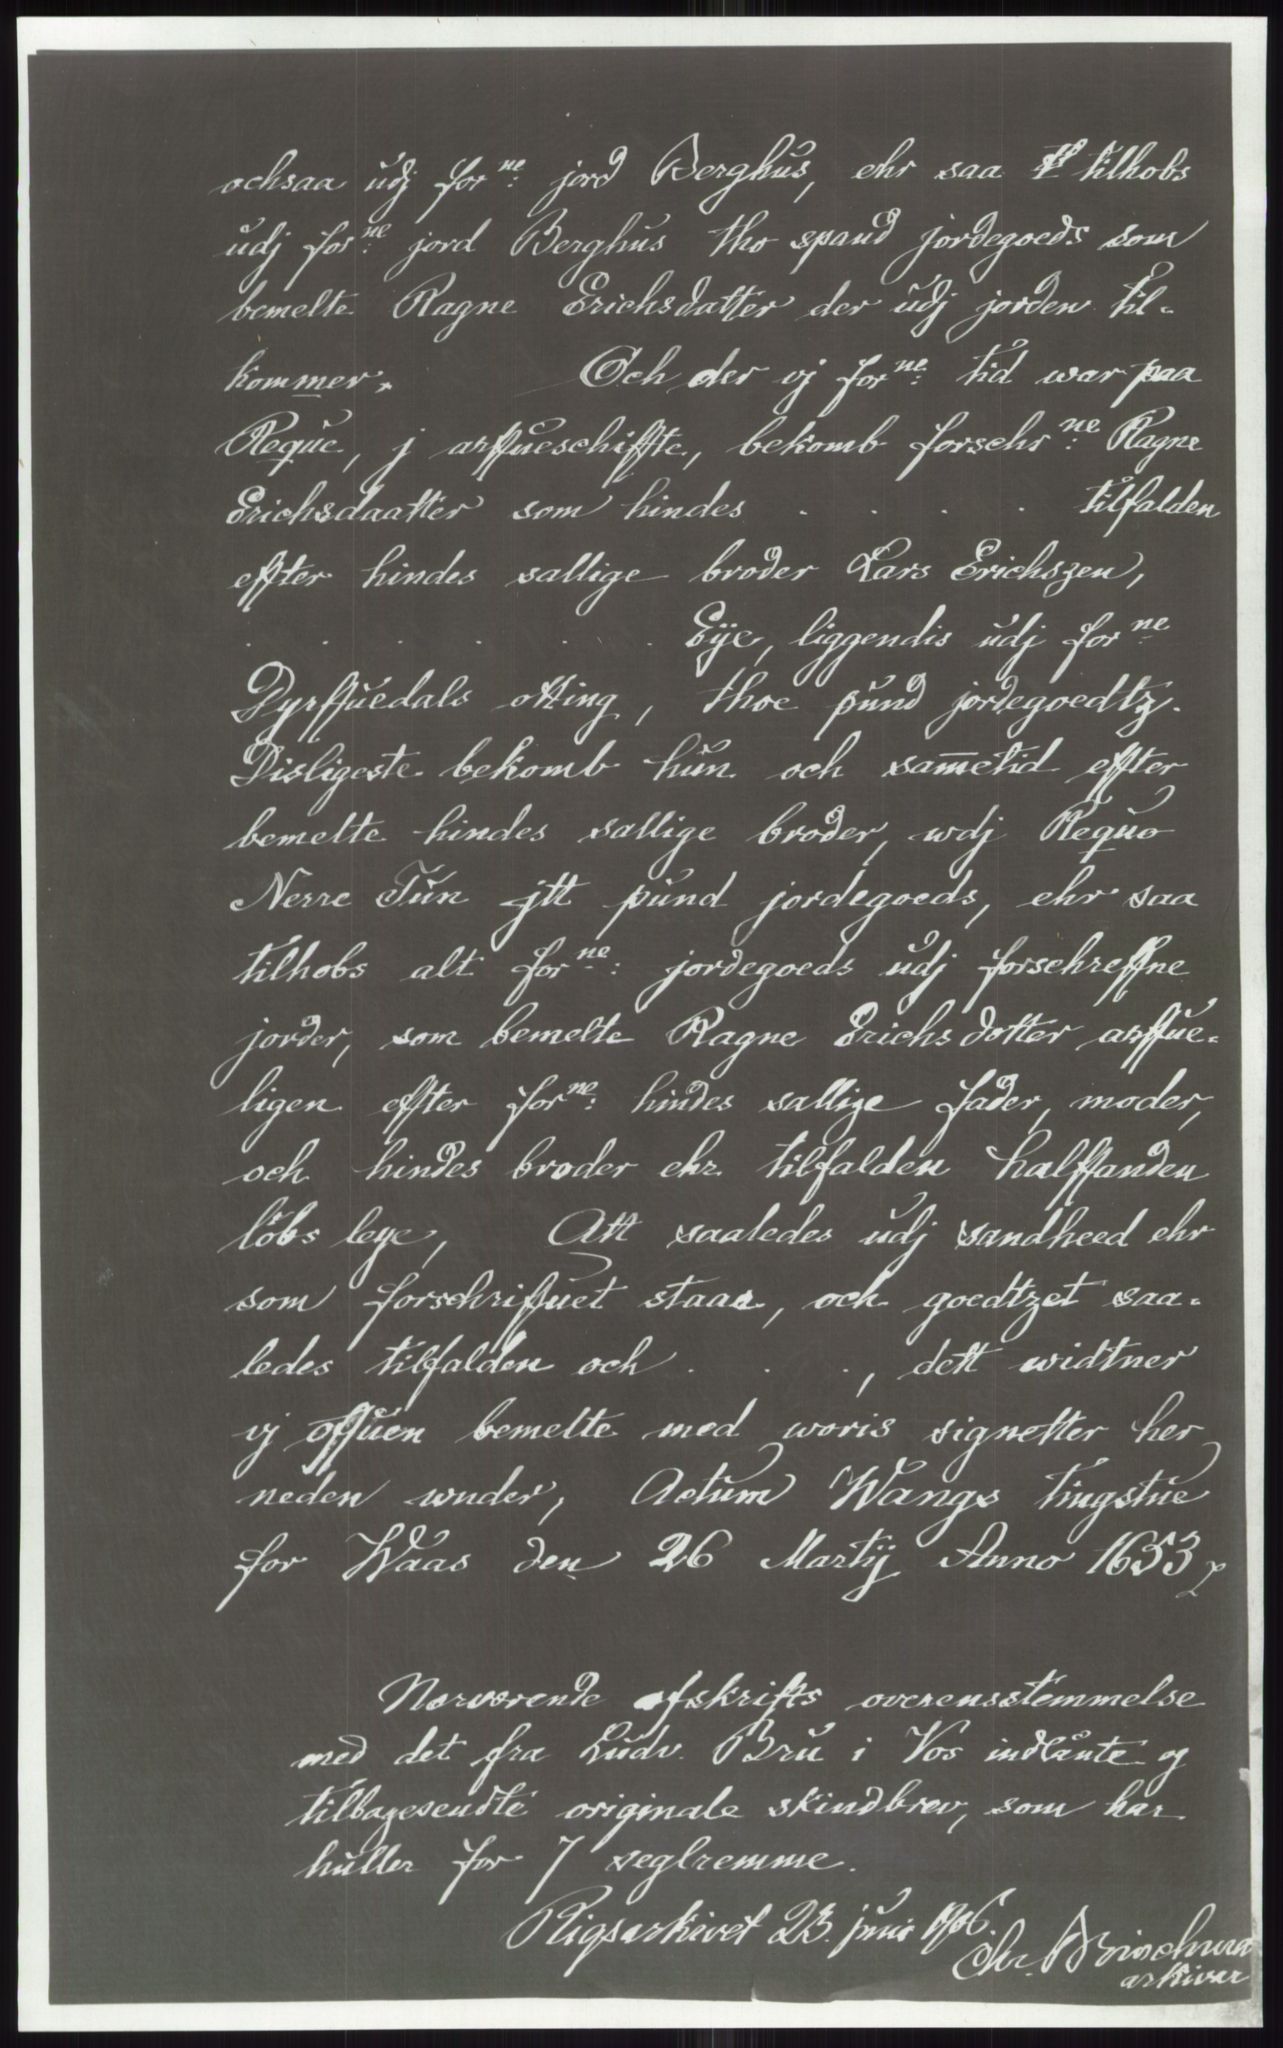 ochsaa udj forne: jord Berghus, ehr saa tilhobs
udj forne: jord Berghus tho spand jordegoeds som
bemelte Ragne Erichsdatter der udj jorden til-
kommer. Och der vj forne: tid war paa
Reque, j arffueschiffte, bekomb forschrne: Ragne
Erichsdaatter som hindes . . . . tilfalden
effter hindes sallige broder Lars Erichszen,
. . . . . . Eÿe, liggendis udj forne
Dyrffuedals otting, thoe pund jordegoedtz.
Disligeste bekomb hun och sam̅etid effter
bemelte hindes sallige broder, wdj Requo
Nerre Tun jtt pund jordegoeds, ehr saa
tilhobs alt forne: jordegoeds udj forschreffne
jorder, som bemelte Ragne Erichsdotter arffue-
ligen effter forne: hindes sallige fader, moder,
och hindes broder ehr tilfalden halffanden
löbs leye, Att saaledes udj sandheed ehr
som forschriffuet staar, och goedtzet saa-
ledes tilfalden och . . ., dett widtner
vj offuen bemelte med woris signetter her
neden wnder, Actum Wangs tingstue
for Waas den 26 Martij Anno 1653
Nærværende afskrifts overensstemmelse
med det fra Ludv. Bru i Vos indlånte og
tilbagesendte originale skindbrev, som har
huller for 7 seglremme.
Rigsarkivet 23. juni 1906.
Chr. Brinchmann
arkivar